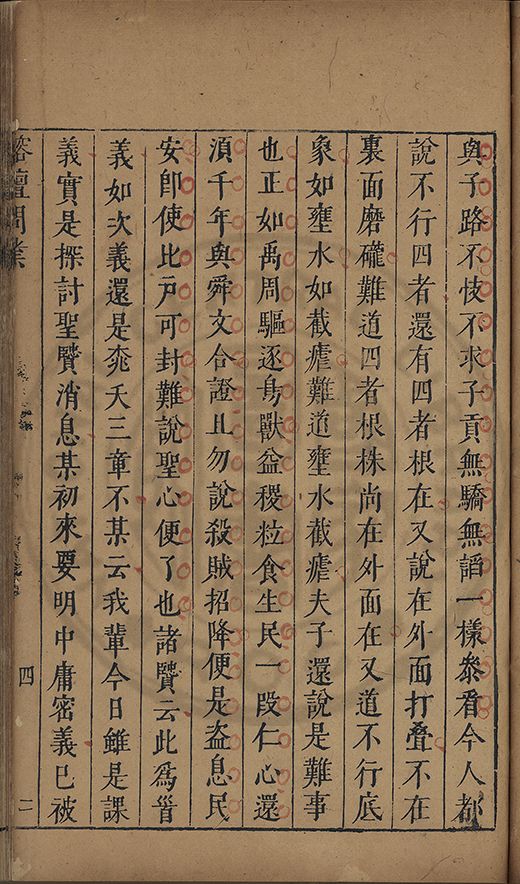 與子路不忮不求子貢無驕無謟一樣叅看今人都
說不行四者還有四者根在又說在外面打疊不在
裏面磨礲難道四者根株尚在外面在又道不行底
象如壅水如截瘧難道壅水截瘧夫子還說是難事
也正如禹周驅逐鳥獸益稷粒食生民一段仁心還
湏千年與舜文合證且勿說殺賊招降便是盜息民
安卽使比戸可封難說聖心便了也諸賢云此爲首
義如次義還是殀夭三章不某云我輩今日雖是課
義實是探討聖賢消息某初來要明中庸密義已被
榕壇問業
四
二